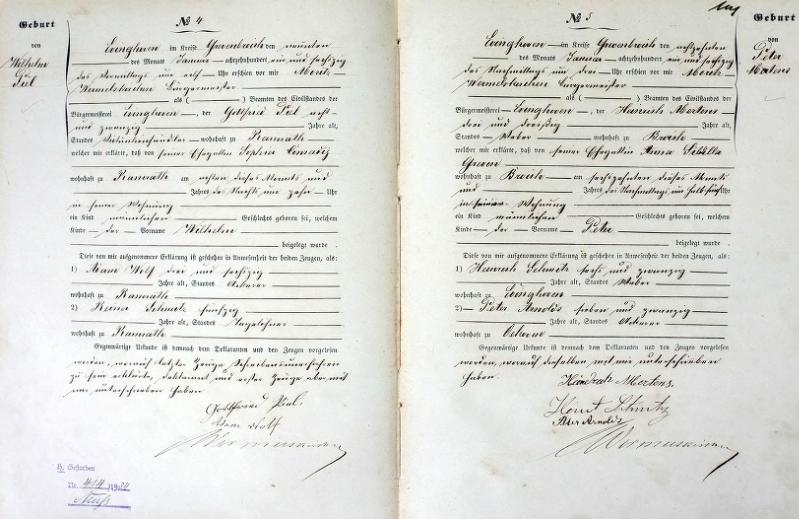 Geburt
von
Wilhelm
№ 4
Evinghoven im Kreise Grevenbroich den neunten
des Monats Januar achtzehnhundert ein und sechszig
des Vormittags um elf Uhr erschien vor mir Moritz
Bürgermeister
als ( ) Beamten des Civilstandes der
Bürgermeisterei Evinghoven, der Gottfried acht
und zwanzig Jahre alt,
Standes wohnhaft zu Ramrath
welcher mir erklärte, daß von seiner Ehegattin Sophia
wohnhaft zu Ramrath am dieses Monats und
Jahres des Nachts um zehn Uhr
in seiner Wohnung
ein Kind männlichen Geschlechts geboren sei, welchem
Kinde der Vorname Wilhelm
beigelegt wurde.
Diese von mir aufgenommene Erklärung ist geschehen in Anwesenheit der beiden Zeugen, als:
1) Adam Wolf drei und sechszig
Jahre alt, Standes Ackerer
wohnhaft zu Ramrath
2) Schmitz fünfzig
Jahre alt, Standes Tagelöhner
wohnhaft zu Ramrath
Gegenwärtige Urkunde ist demnach dem Deklaranten und den Zeugen vorgelesen
worden, worauf letzter Zeuge Schreibensunerfahren
zu sein erklärte, Deklarant und erster Zeuge aber mit
mir unterschrieben haben
Gottfried
Adam Wolf
H. Gestorben
Nr.
Geburt
von
Peter
Mertens
№ 5
Evinghoven im Kreise Grevenbroich den achtzehnten
des Monats Januar achtzehnhundert ein und sechszig
des Nachmittags um drei Uhr erschien vor mir Moritz
Bürgermeister
als ( ) Beamten des Civilstandes der
Bürgermeisterei Evinghoven, der Heinrich Mertens
drei und dreißig Jahre alt,
Standes Weber wohnhaft zu
welcher mir erklärte, daß von seiner Ehegattin Anna Sibilla
wohnhaft zu am sechszehnten dieses Monats
und Jahres des Nachmittags um halb fünf Uhr
in seiner Wohnung
ein Kind männlichen Geschlechts geboren sei, welchem
Kinde der Vorname Peter
beigelegt wurde.
Diese von mir aufgenommene Erklärung ist geschehen in Anwesenheit der beiden Zeugen, als:
1) Heinrich Schmitz sechs und zwanzig
Jahre alt, Standes Weber
wohnhaft zu Evinghoven
2) Peter Arnolds sieben und zwanzig
Jahre alt, Standes Ackerer
wohnhaft zu
Gegenwärtige Urkunde ist demnach dem Deklaranten und den Zeugen vorgelesen
worden, worauf dieselben mit mir unterschrieben
haben.
Mertens.
Schmitz
Peter Arnolds